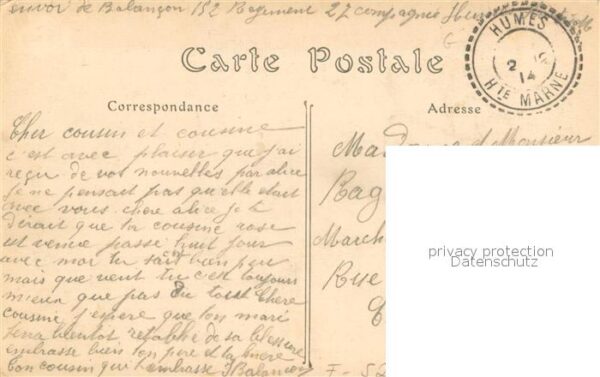 envoi de Balançon 152 Regiment 27 compagnie
HUMES
2
14
HTE MARNE
Carte Postale
Correspondance
Adresse
Cher cousin et cousine
c'est avec plaisir que j'ai
reçu de vos nouvelles par alice
je ne pensait pas qu'elle etait
avec vous chere alice je te
dirait que ta cousine rose
est venue passé huit jour
avec moi tu sait bien peu
mais que veut tu c'est toujours
mieux que pas du tout Chere
cousine j'espere que ton mari
sera bientot retablie de sa blessure
embrasse bien ton pere et ta mere
ton cousin qui t'embrasse J Balançon
Madame et Monsieur
Bag
March
Rue
F-52
privacy protection
Datenschutz